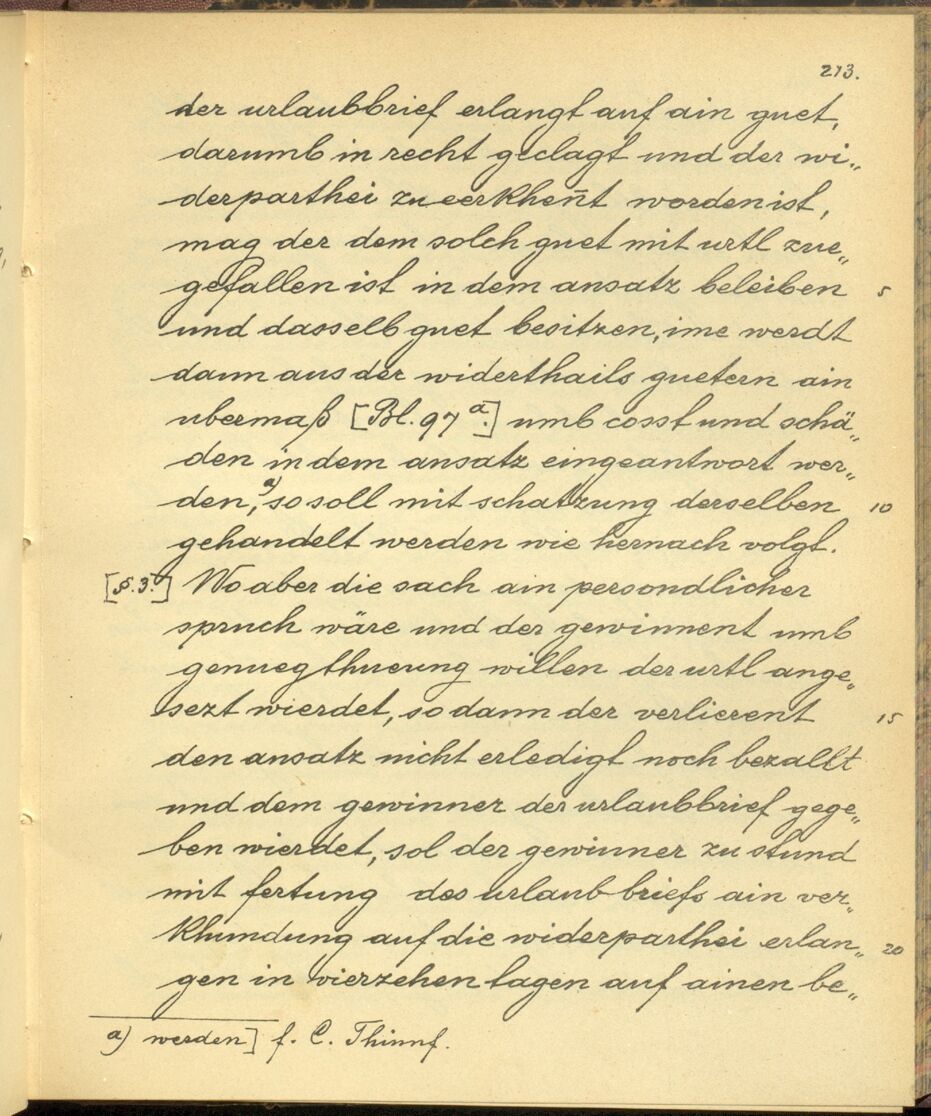 213.
der urlaubbrief erlangt auf ain guet,
darumb in recht geclagt und der wi„
derparthei zu eerkhen̄t worden ist,
mag der dem solch guet mit urtl zue„
gefallen ist in dem ansatz beleiben 5
und dasselb guet besitzen, ime werdt
dann aus der widerthails guetern ain
ubermaß [Bl. 97 a.] umb cosst und schä„
den in dem ansatz eingeantwort wer„
den,a) so soll mit schatzung derselben 10
gehandelt werden wie hernach volgt.
[§. 3.] Wo aber die sach ain persondlicher
spruch wäre und der gewinnent umb
genuegthuerung willen der urtl ange„
sezt wierdet, so dann der verlierent 15
den ansatz nicht erledigt noch bezallt
und dem gewinner der urlaubbrief gege„
ben wierdet, sol der gewinner zu stund
mit fertung des urlaub briefs ain ver„
khundung auf die widerparthei erlan„ 20
gen in vierzehen tagen auf ainen be„
a) werden] f. C. Thinnf.